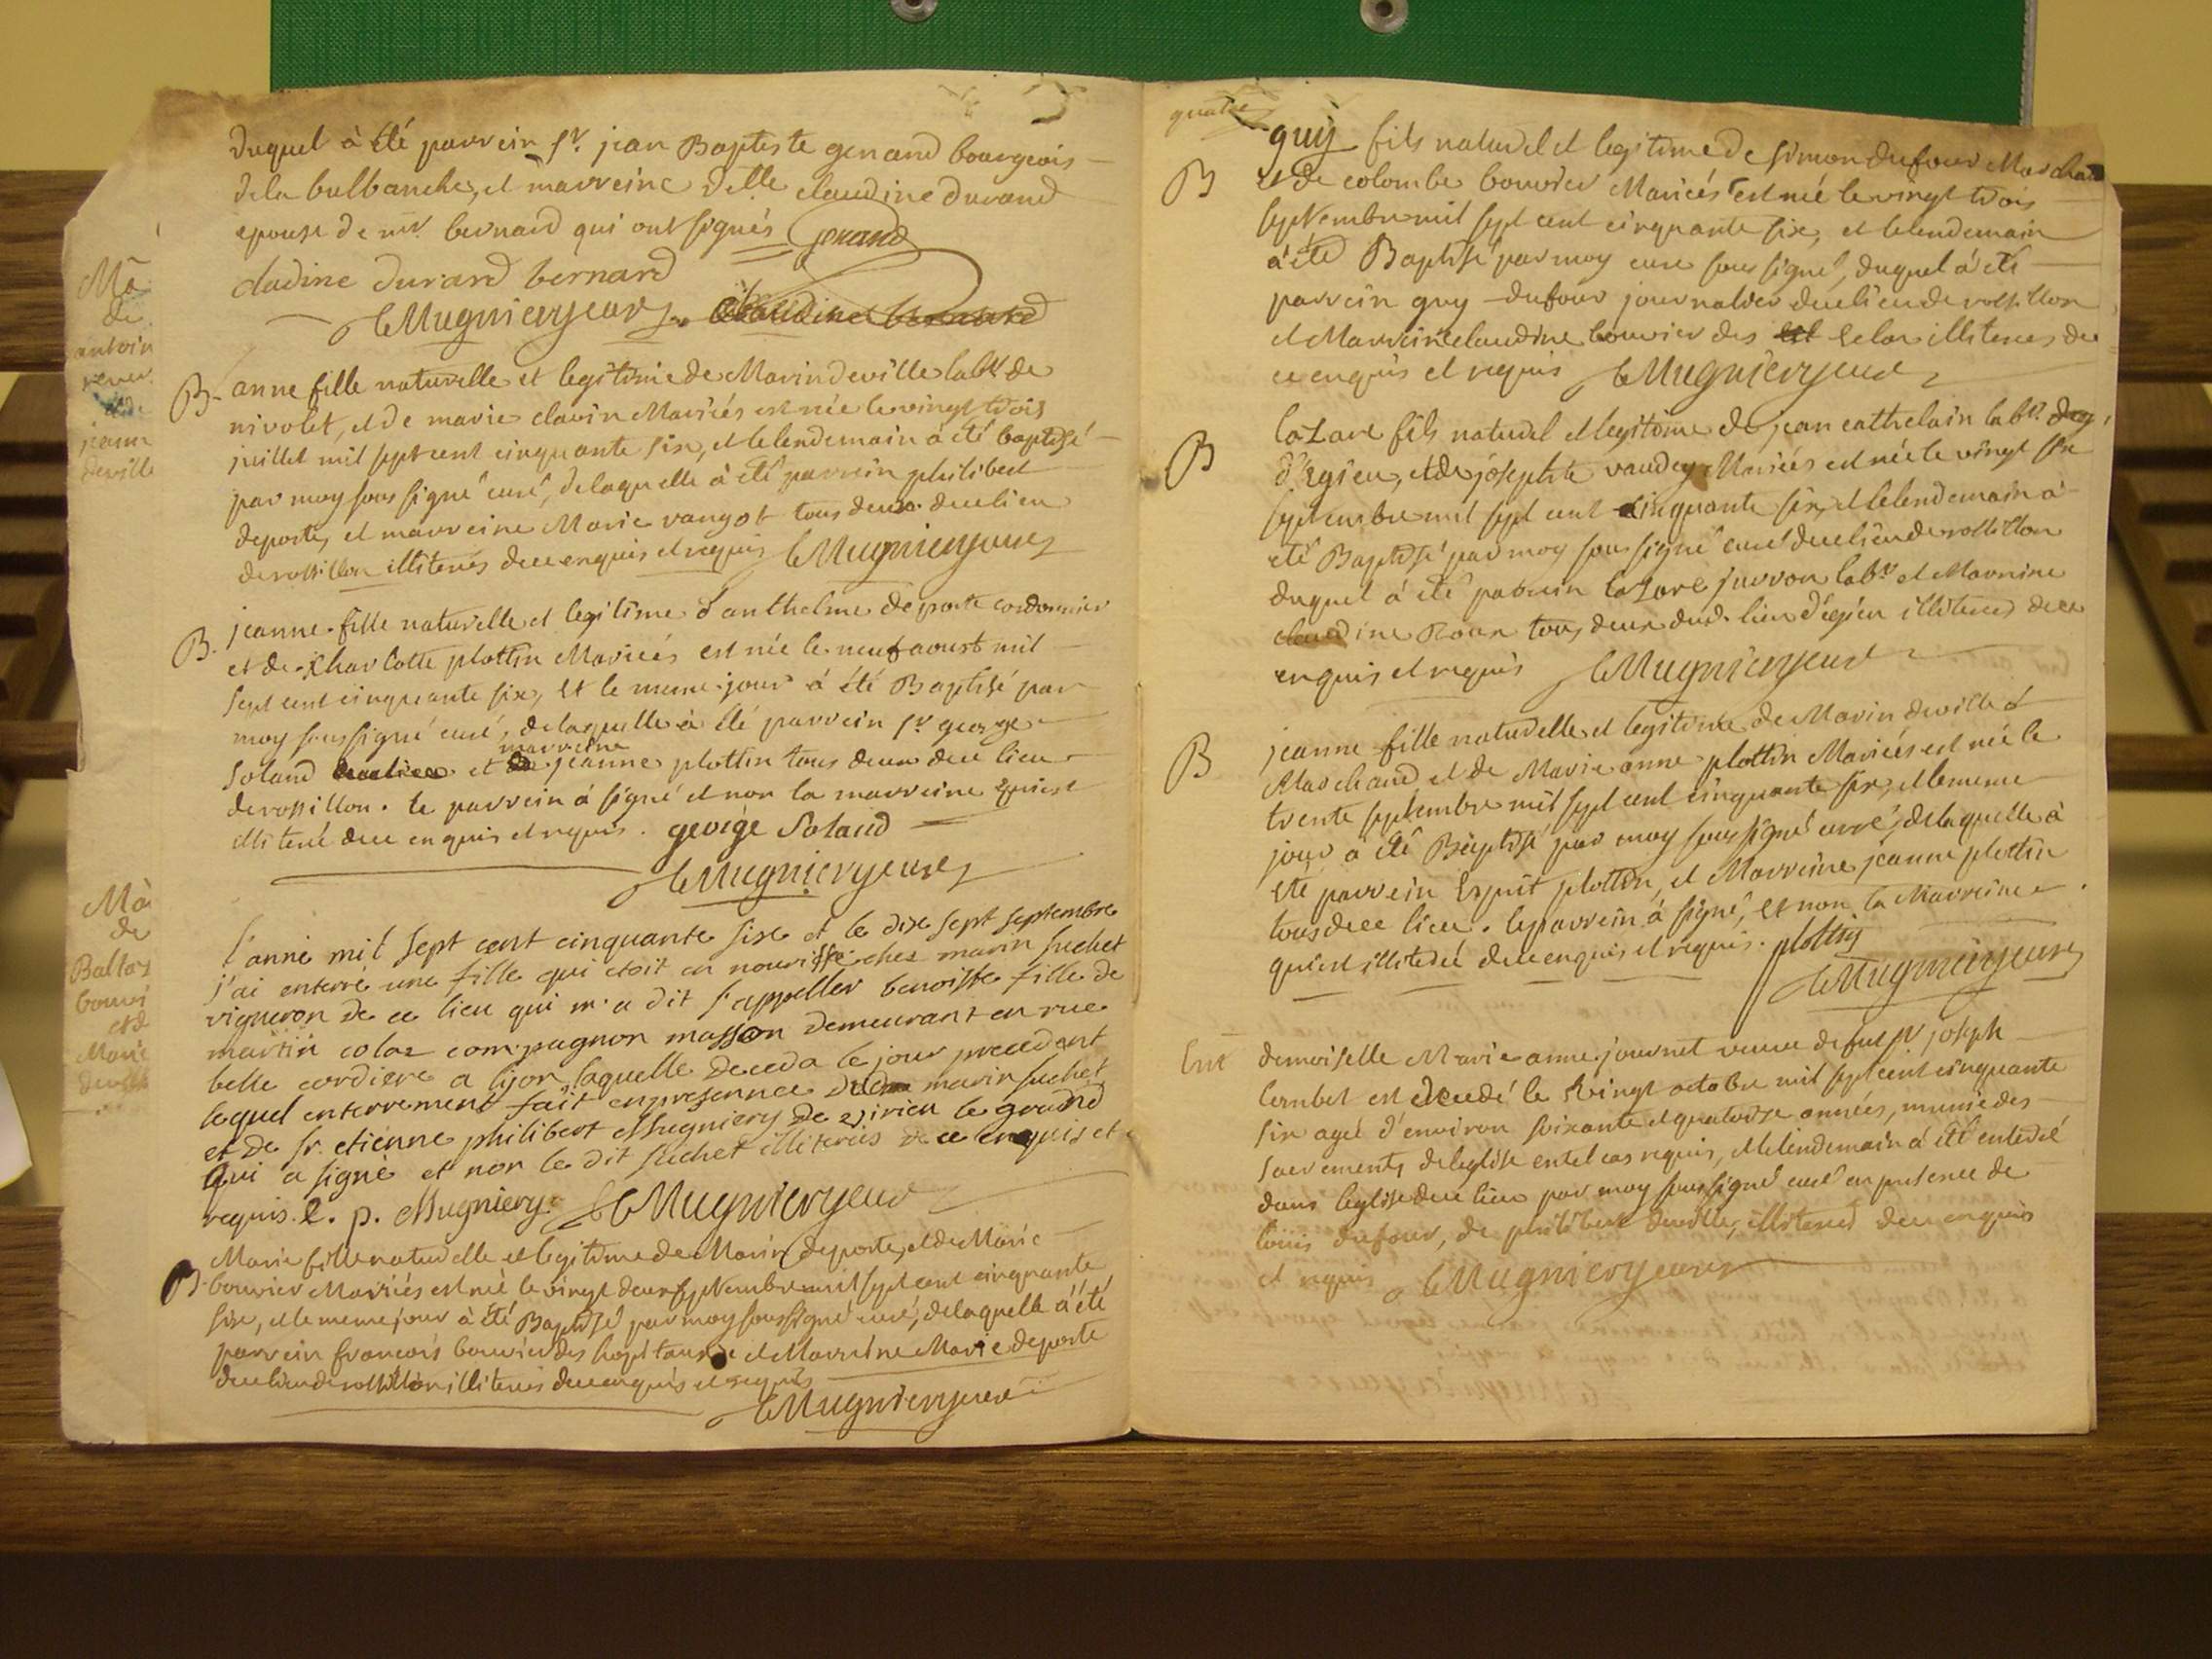 duquel à été parrein sr. jean Baptiste genand bourgeois
dela balbanche, et marreine delle claudine durand
epouse de mr. bernard qui ont signés genand
cladine durand bernard
leMugniery cure
Mà
de
antoin
rever
et de
jeann
deville
B. anne fille naturelle et legitime de Marin deville labr de
nivolet, et de marie clavin Mariés est née le vingt trois
juillet mil sept cent cinquante six, et lelendemain à été baptisé
par moy sous signé curé, delaquelle à été parrein philibert
deporte, et marreine Marie vangot tous deux dece lieu
derossillon illiterés dece enquis et requis leMugniery cure
B. jeanne fille naturelle et legitime d'anthelme deporte cordonnier
et de charlotte plottin Mariés est née le neuf aoust mil
sept cent cinquante six, et le meme jour à été Baptisé par
moy soussigné curé, delaquelle à été parrein sr george
marreine
Soland et jeanne plottin tous deux dece lieu
derossillon. le parrein à signé et non la marreine qui est
illiteré dece enquis et requis. george Soland
leMugniery cure
Mà
de
Baltaz
bouvi
et d
Marie
deville
l'anné mil sept cent cinquante six et le dix sept septembre
j'ai enterré une fille qui etoit en nourisse chez marin suchet
vigneron de ce lieu qui m'a dit s'appeller benoiste fille de
martin colaz compagnon masson demeurant en rue
belle cordiere a lÿon, laquelle deceda le jour precedent
lequel enterrement fait en presence dud marin suchet
et de sr. etienne philibert Mugniery de virieu le grand
qui a signé et non le dit suchet illiterés de ce enquis et
requis. e. p. Mugniery. leMugniery cure
B. Marie fille naturelle et legitime de Marin deporte, et de Marie
bouvier Mariés est née le vingt deux septembre mil sept cent cinquante
six, et le meme jour à été Baptisé par moy soussigné curé, delaquelle à été
parrein francois bouvier des hopitaux et Marreine Marie deporte
dece lieu derossillon illiterés dece enquis et requis
leMugniery cure
quatre
guÿ fils naturel et legitime de simon dufour Marchand
B et de colombe bouvier Mariés est né le vingt trois
septembre mil sept cent cinquante six, et lelendemain
à été Baptisé par moy cure sous signé, duquel à été
parrein guy dufour journalier dece lieu de rossillon
et Marreine claudine bouvier des illiteres de
ce enquis et requis leMugniery cure
B laZare fils naturel et legitime de jean cathelain labr.
d'Egieu, et de josephte vaudey Mariés est née le vingt six
septembre mil sept cent cinquante six, et lelendemain à
été Baptisé par moy sous signé curé dece lieu de rossillon
duquel à été parrein laZare jurron labr et Marreine
claudine Roux tous deux dud. lieu d'egieu illiteres dece
enquis et requis leMugniery cure
B jeanne fille naturelle et legitime de Marin deville
Marchand et de Marie anne plottin Mariés est née le
trente septembre mil sept cent cinquante six, et lememe
jour a été Baptisé par moy soussigné curé, delaquelle à
été parrein Esprit plottin, et Marreine jeanne plottin
tous dece lieu. le parrein à signé, et non la Marreine
qui est illiteré dece enquis et requis. plottin
leMugniery cure
Ent demoiselle Marie anne journet veuve de feu sr joseph
Combet est decedé le vingt octobre mil sept cent cinquante
six ageé d'environ soixante et quatorze années, munie des
sacrements deleglise entel cas requis, et lelendemain à été enteré
dans leglise dece lieu par moy soussigné curé en presence de
louis dufour, de philibert deville, illiterés dece enquis
et requis leMugniery cure